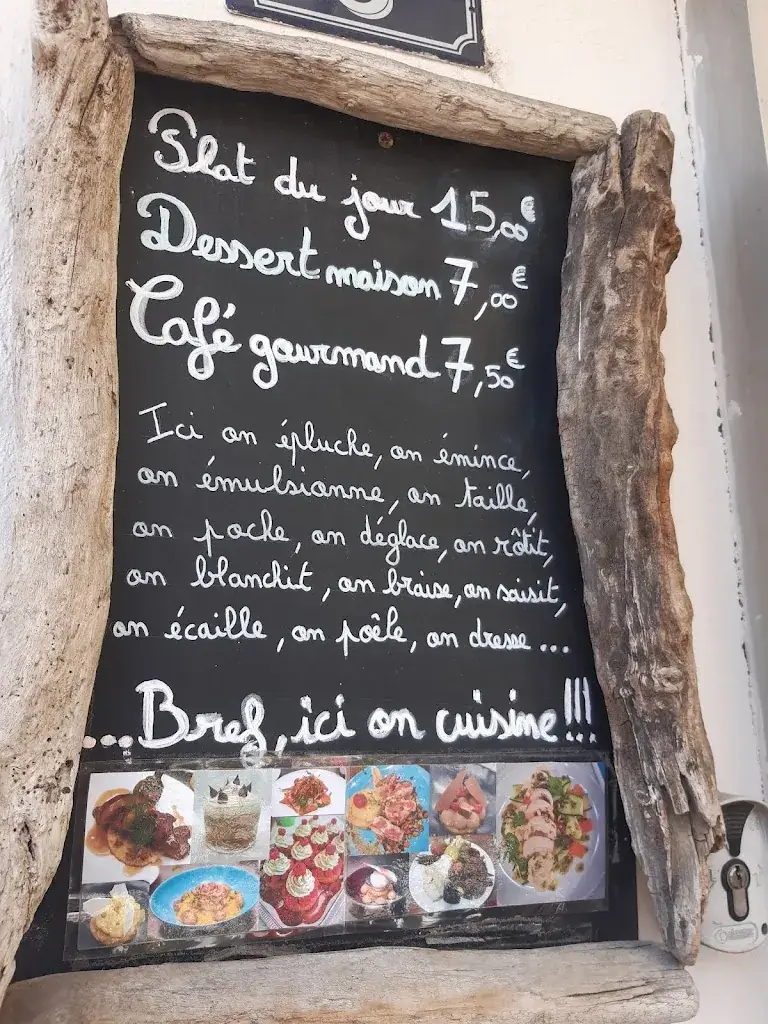 Plat du jour 15,00€
Dessert maison 7,00€
Café gourmand 7,50€
Ici on épluche, on émince,
on émulsionne, on taille,
on poche, on déglace, on rôtit,
on blanchit, on braise, on saisit,
on écaille, on poêle, on dresse...
...Bref, ici on cuisine!!!